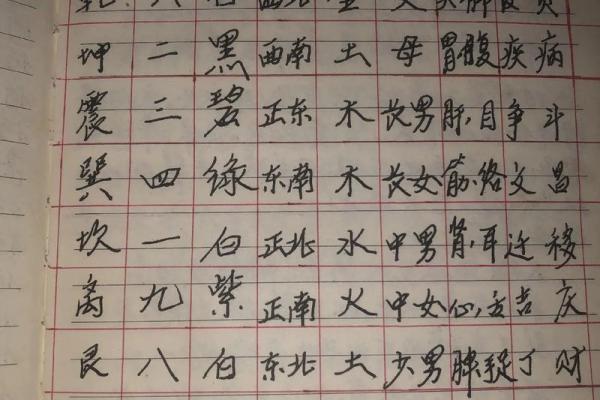 六 白 西北
坤 二 黑 西南 土 母 胃腹 疾 病
震 三 碧 正东 木 长男 肝,目 争 斗
巽 四 绿 东南 木 长女 筋,络 文 昌
坎 一 白 正北 水 中男 肾,耳 迁 移
离 九 紫 正南 火 中女 心,舌 吉 庆
艮 八 白 东北 土 少男 脾 丁 财